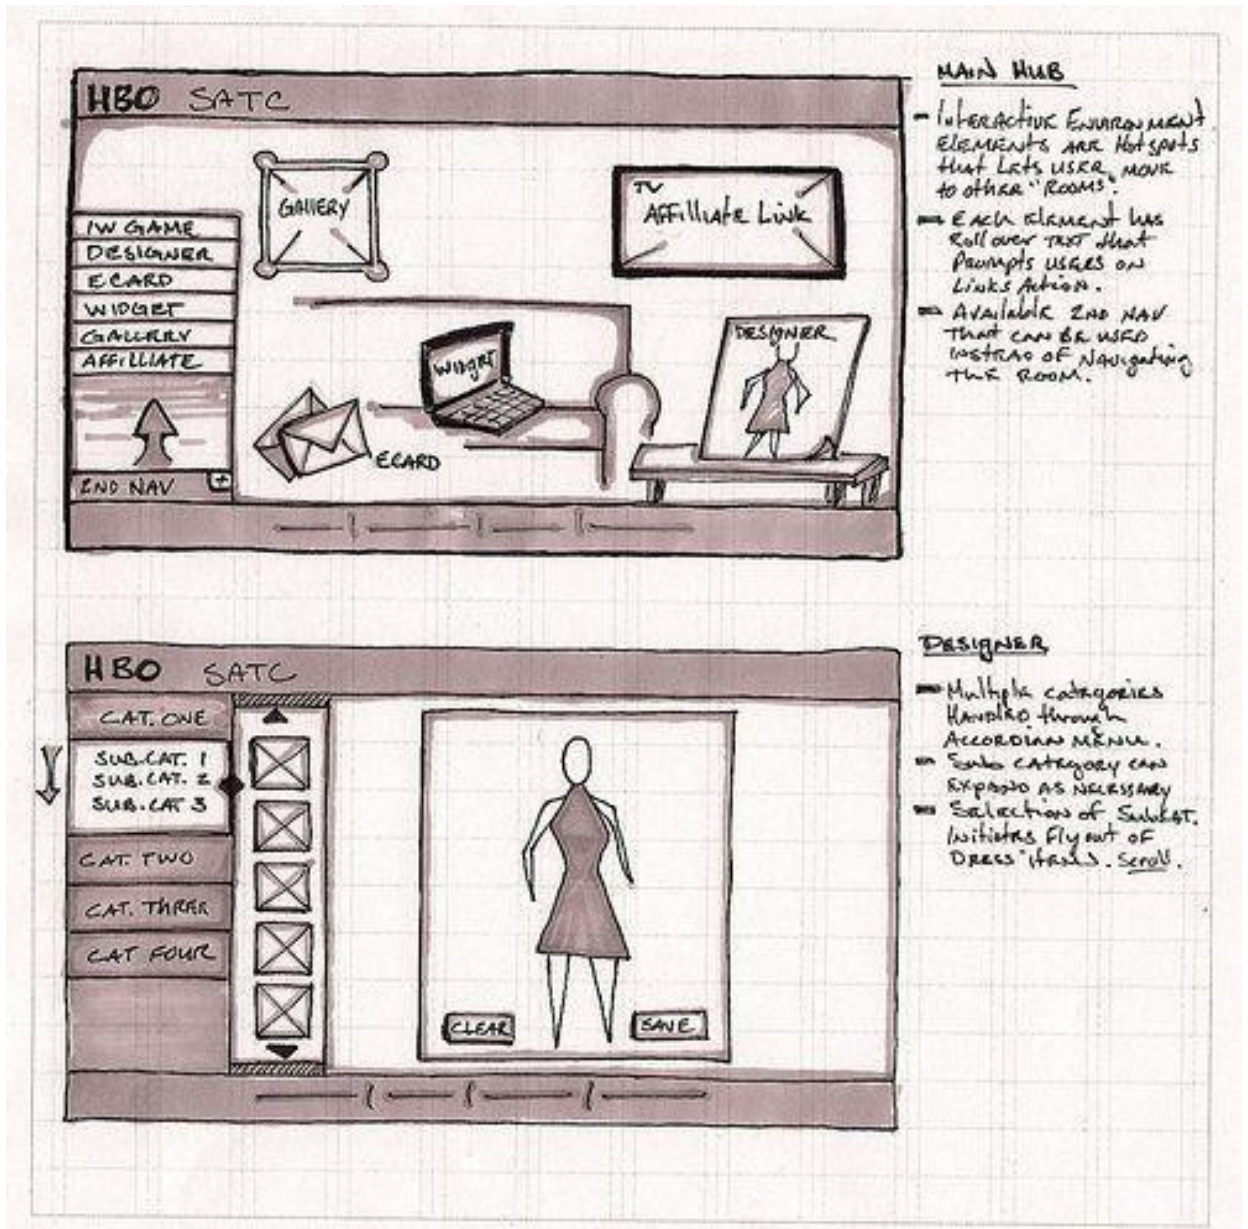 HBO SATC
GALLERY
TV
AFFILLIATE LINK
IW GAME
DESIGNER
ECARD
WIDGET
GALLERY
AFFILLIATE
2ND NAV +
WIDGET
ECARD
DESIGNER
MAIN HUB
- INTERACTIVE ENVIRONMENT
ELEMENTS ARE HOTSPOTS
THAT LETS USER MOVE
TO OTHER "ROOMS".
- EACH ELEMENT HAS
ROLLOVER TEXT THAT
PROMPTS USERS ON
LINKS ACTION.
- AVAILABLE 2ND NAV
THAT CAN BE USED
INSTEAD OF NAVIGATING
THE ROOM.
HBO SATC
CAT. ONE
SUB.CAT. 1
SUB.CAT. 2
SUB.CAT 3
CAT. TWO
CAT. THREE
CAT FOUR
CLEAR
SAVE
DESIGNER
- MULTIPLE CATEGORIES
HANDLED THROUGH
ACCORDIAN MENU.
- SUB CATEGORY CAN
EXPAND AS NECESSARY
- SELECTION OF SUBCAT.
INITIATES FLYOUT OF
"DRESS" ITEMS. SCROLL.